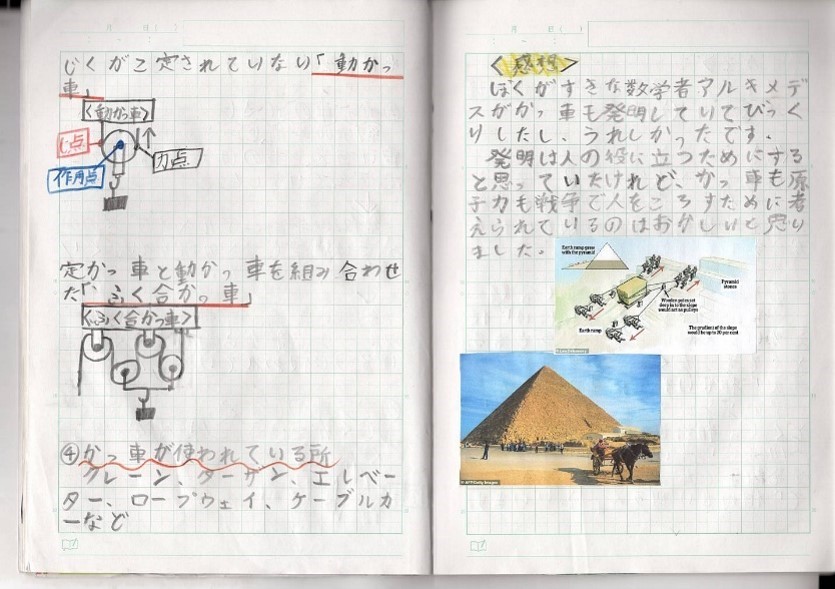 じくがこ定されていない「動かっ
車」
〈動かっ車〉
し点
力点
作用点
定かっ車と動かっ車を組み合わせ
た「ふく合かっ車」
〈ふく合かっ車〉
④かっ車が使われている所
クレーン、ターザン、エレベー
ター、ロープウェイ、ケーブルカ
ーなど
月 日( )
〈感想〉
ぼくがすきな数学者アルキメデ
スがかっ車も発明していてびっく
りしたし、うれしかったです。
発明は人の役に立つためにする
と思っていたけれど、かっ車も原
子力も戦争で人をころすために考
えられているのはおかしいと思い
ました。
Earth ramp grows
with the pyramid
Pyramid
stones
Wooden poles set
deep in to the slope
would act as pulleys
Earth ramp
The gradient of the slope
would be up to 20 per cent
© AFP/Getty Images